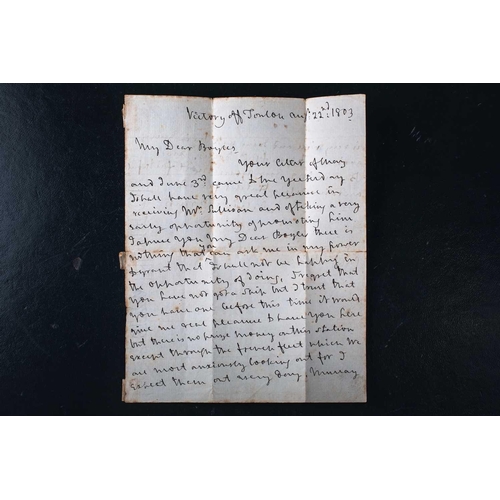 Victory off Toulon augt 22nd: 1803
My Dear Boyles
Your letter of May
and June 3rd. came to me yesterday
I shall have very great pleasure in
receiving Mr. Sullivan and of taking a very
early opportunity of promoting him
I assure you My Dear Boyles there is
nothing that can ask me in my power
to grant that I shall not be happy in
the opportunity of doing, I regret that
you have not got a ship but I trust that
you have one before this time it would
give me real pleasure to have you here
but there is no prize money on this station
except through the french fleet which we
are most anxiously looking out for I
expect them out every day, Murray